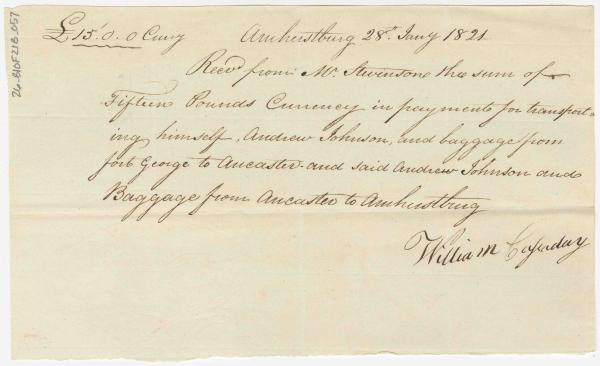 £15.0.0 Curry Amherstburg 28th Jany 1821
Recd from Mr Stevenson the sum of
Fifteen Pounds Currency in payment for transport-
ing himself, Andrew Johnson, and baggage from
fort George to Ancaster and said Andrew Johnson and
Baggage from Ancaster to Amherstburg
William